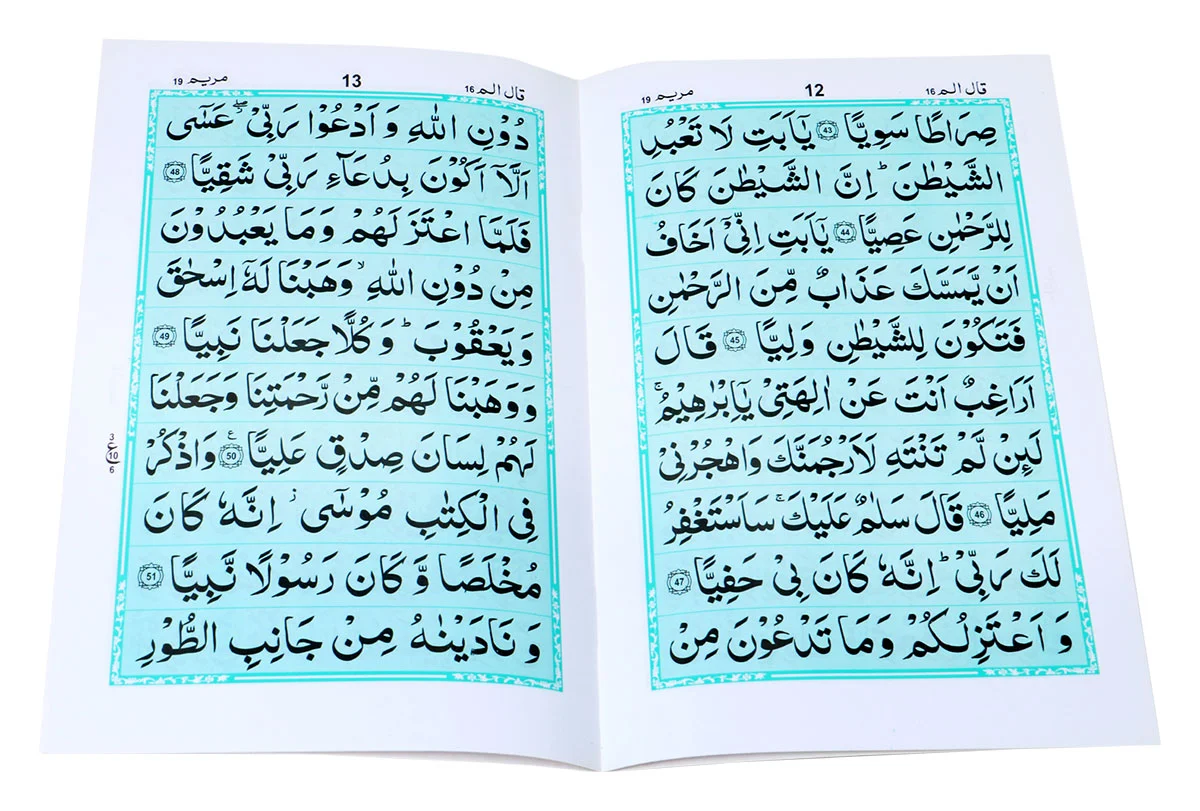 قال الم 16 12 مريم 19
صِرَاطًا سَوِيًّا 43 يٰۤاَبَتِ لَا تَعْبُدِ
الشَّيْطٰنَ ؕ اِنَّ الشَّيْطٰنَ كَانَ
لِلرَّحْمٰنِ عَصِيًّا 44 يٰۤاَبَتِ اِنِّىْۤ اَخَافُ
اَنْ يَّمَسَّكَ عَذَابٌ مِّنَ الرَّحْمٰنِ
فَتَكُوْنَ لِلشَّيْطٰنِ وَلِيًّا 45 قَالَ
اَرَاغِبٌ اَنْتَ عَنْ اٰلِهَتِىْ يٰۤاِبْرٰهِيْمُ ۚ
لَئِنْ لَّمْ تَنْتَهِ لَاَرْجُمَنَّكَ وَاهْجُرْنِىْ
مَلِيًّا 46 قَالَ سَلٰمٌ عَلَيْكَ ۚ سَاَسْتَغْفِرُ
لَكَ رَبِّىْ ؕ اِنَّهٗ كَانَ بِىْ حَفِيًّا 47
وَ اَعْتَزِلُكُمْ وَمَا تَدْعُوْنَ مِنْ
قال الم 16 13 مريم 19
دُوْنِ اللّٰهِ وَ اَدْعُوْا رَبِّىْ ۖ عَسٰۤى
اَلَّاۤ اَكُوْنَ بِدُعَآءِ رَبِّىْ شَقِيًّا 48
فَلَمَّا اعْتَزَلَهُمْ وَمَا يَعْبُدُوْنَ
مِنْ دُوْنِ اللّٰهِ ۙ وَهَبْنَا لَهٗۤ اِسْحٰقَ
وَيَعْقُوْبَ ؕ وَكُلًّا جَعَلْنَا نَبِيًّا 49
وَوَهَبْنَا لَهُمْ مِّنْ رَّحْمَتِنَا وَجَعَلْنَا
لَهُمْ لِسَانَ صِدْقٍ عَلِيًّا 50 ع وَاذْكُرْ
3 ع 10 6
فِى الْكِتٰبِ مُوْسٰۤى ۫ اِنَّهٗ كَانَ
مُخْلَصًا وَّ كَانَ رَسُوْلًا نَّبِيًّا 51
وَ نَادَيْنٰهُ مِنْ جَانِبِ الطُّوْرِ